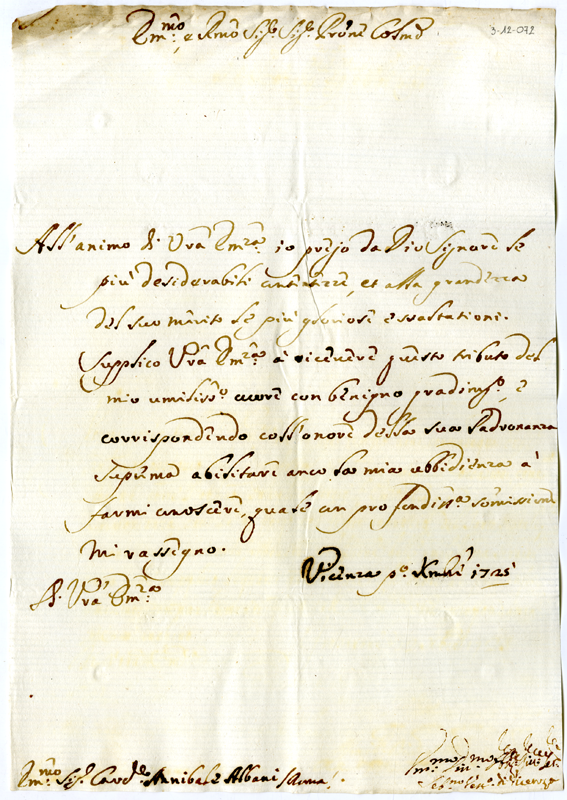 3-12-072
Em.mo e Rmo Sig.r Sig.r Prone Colmo
All'animo di Vrã Em.za io prego da Dio Signore le
più desiderabili contentezze, et alla grandezza
del suo merito le più gloriose essaltationi.
Supplico Vrã Em.za à ricevere questo tributo del
mio umiliss.o cuore con benigno gradim.to, e
corrispondendo coll'onore della sua Padronanza
suprema abilitare anco la mia ubbidienza à
farmi conoscere, quale con profondiss.a sommissione
mi rassegno.
Di Vrã Em.za
Vicenza p.o Xmbre 1725
Em.mo Sig.r Card.le Annibale Albani Roma